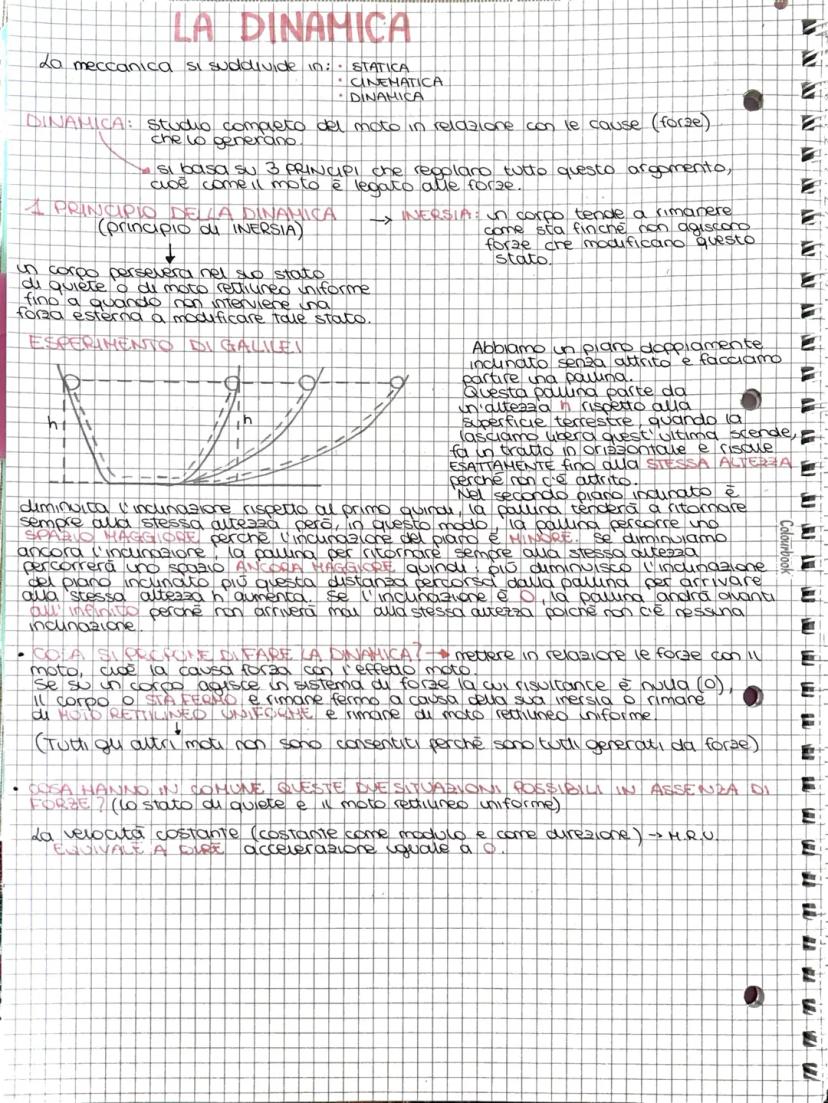 LA DINAMICA
La meccanica si suddivide in: · STATICA
· CINEMATICA
· DINAMICA
DINAMICA: studio completo del moto in relazione con le cause (forze)
che lo generano.
si basa su 3 PRINCIPI che regolano tutto questo argomento,
cioè come il moto è legato alle forze.
1 PRINCIPIO DELLA DINAMICA
(principio di INERSIA)
→ INERSIA: un corpo tende a rimanere
come sta finchè non agiscono
forze che modificano questo
stato.
un corpo persevera nel suo stato
di quiete o di moto rettilineo uniforme
fino a quando non interviene una
forza esterna a modificare tale stato.
ESPERIMENTO DI GALILEI
h
h
Abbiamo un piano doppiamente
inclinato senza attrito e facciamo
partire una pallina.
Questa pallina parte da
un'altezza h rispetto alla
superficie terrestre, quando la
lasciamo libera quest'ultima scende,
fa un tratto in orizzontale e risale
ESATTAMENTE fino alla STESSA ALTEZZA
perchè non c'è attrito.
Nel secondo piano inclinato è
diminuita l'inclinazione rispetto al primo quindi, la pallina tenderà a ritornare
sempre alla stessa altezza però, in questo modo, la pallina percorre uno
SPAZIO MAGGIORE perchè l'inclinazione del piano è MINORE. Se diminuiamo
ancora l'inclinazione, la pallina per ritornare sempre alla stessa altezza
percorrerà uno spazio ANCORA MAGGIORE quindi: più diminuisco l'inclinazione
del piano inclinato più questa distanza percorsa dalla pallina per arrivare
alla stessa altezza h aumenta. Se l'inclinazione è 0, la pallina andrà avanti
all'infinito perchè non arriverà mai alla stessa altezza poichè non c'è nessuna
inclinazione.
• COSA SI PROPONE DI FARE LA DINAMICA? → mettere in relazione le forze con il
moto, cioè la causa forza con l'effetto moto.
Se su un corpo agisce un sistema di forze la cui risultante è nulla (0),
il corpo o STA FERMO e rimane fermo a causa della sua inersia o rimane
di MOTO RETTILINEO UNIFORME e rimane di moto rettilineo uniforme.
(Tutti gli altri moti non sono consentiti perchè sono tutti generati da forze)
• COSA HANNO IN COMUNE QUESTE DUE SITUAZIONI POSSIBILI IN ASSENZA DI
FORZE? (lo stato di quiete e il moto rettilineo uniforme)
La velocità costante (costante come modulo e come direzione) → M.R.U.
EQUIVALE A DIRE accelerazione uguale a 0.
Colourbook